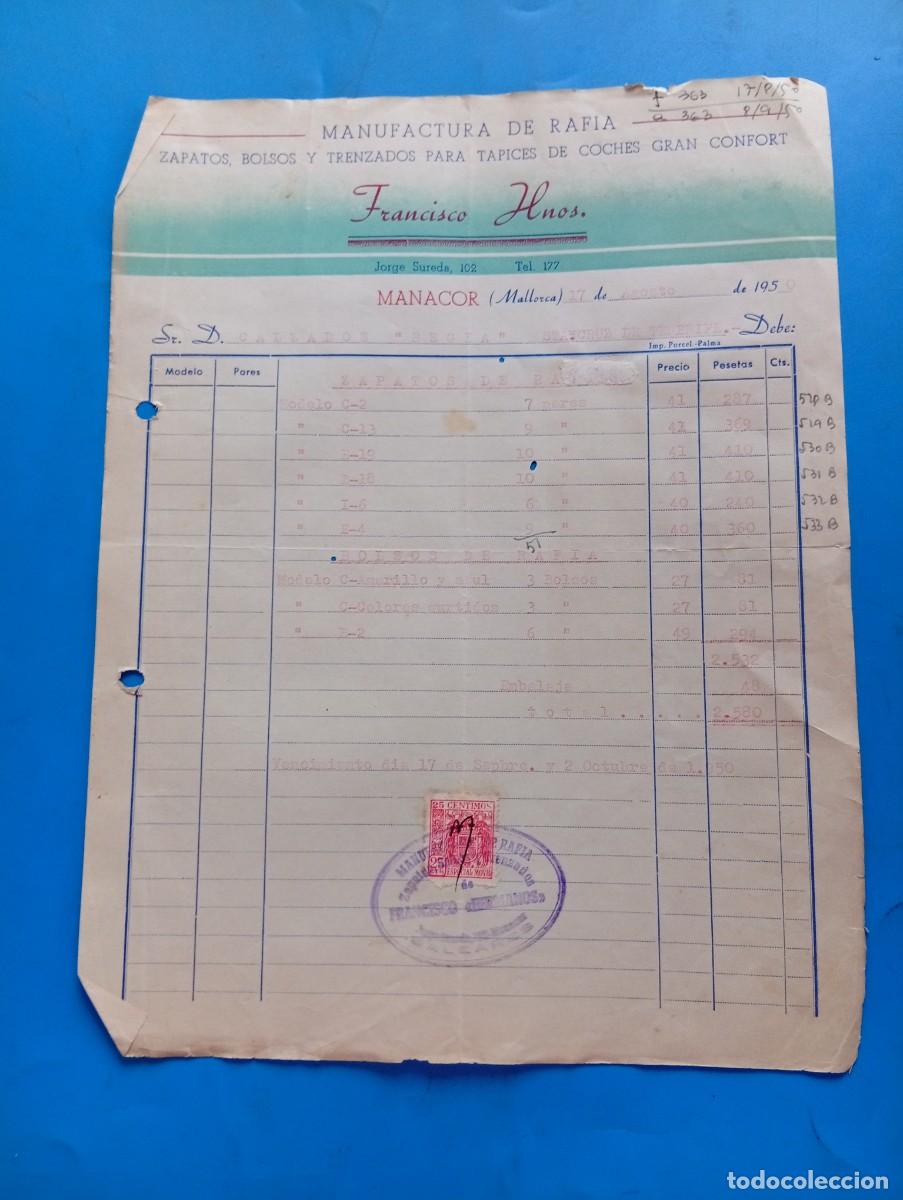 f 363 17/8/50
a 363 8/9/50
MANUFACTURA DE RAFIA
ZAPATOS, BOLSOS Y TRENZADOS PARA TAPICES DE COCHES GRAN CONFORT
Francisco Hnos.
Jorge Sureda, 102 Tel. 177
MANACOR (Mallorca) 17 de Agosto de 1950
Sr. D. CALZADOS "SEGTA" STA.CRUZ DE TENERIFE.- Debe:
Imp. Purcel.-Palma
Modelo Pares Precio Pesetas Cts.
ZAPATOS DE RAFIA
Modelo C-2 7 pares 41 287 528 B
" C-13 9 " 41 369 529 B
" E-19 10 " 41 410 530 B
" E-18 10 " 41 410 531 B
" I-6 6 " 40 240 532 B
" E-4 9 " 40 360 533 B
51
BOLSOS DE RAFIA
Modelo C-Amarillo y azul 3 Bolsos 27 81
" C-Colores surtidos 3 " 27 81
" E-2 6 " 49 294
2.532
Embalaje 48
total..... 2.580
Vencimiento dia 17 de Sepbre. y 2 Octubre de 1.950
25 CENTIMOS
ESPECIAL MOVIL
MANUFACTURA DE RAFIA
Trenzados
de
FRANCISCO «HERMANOS»
BALEARES
todocoleccion